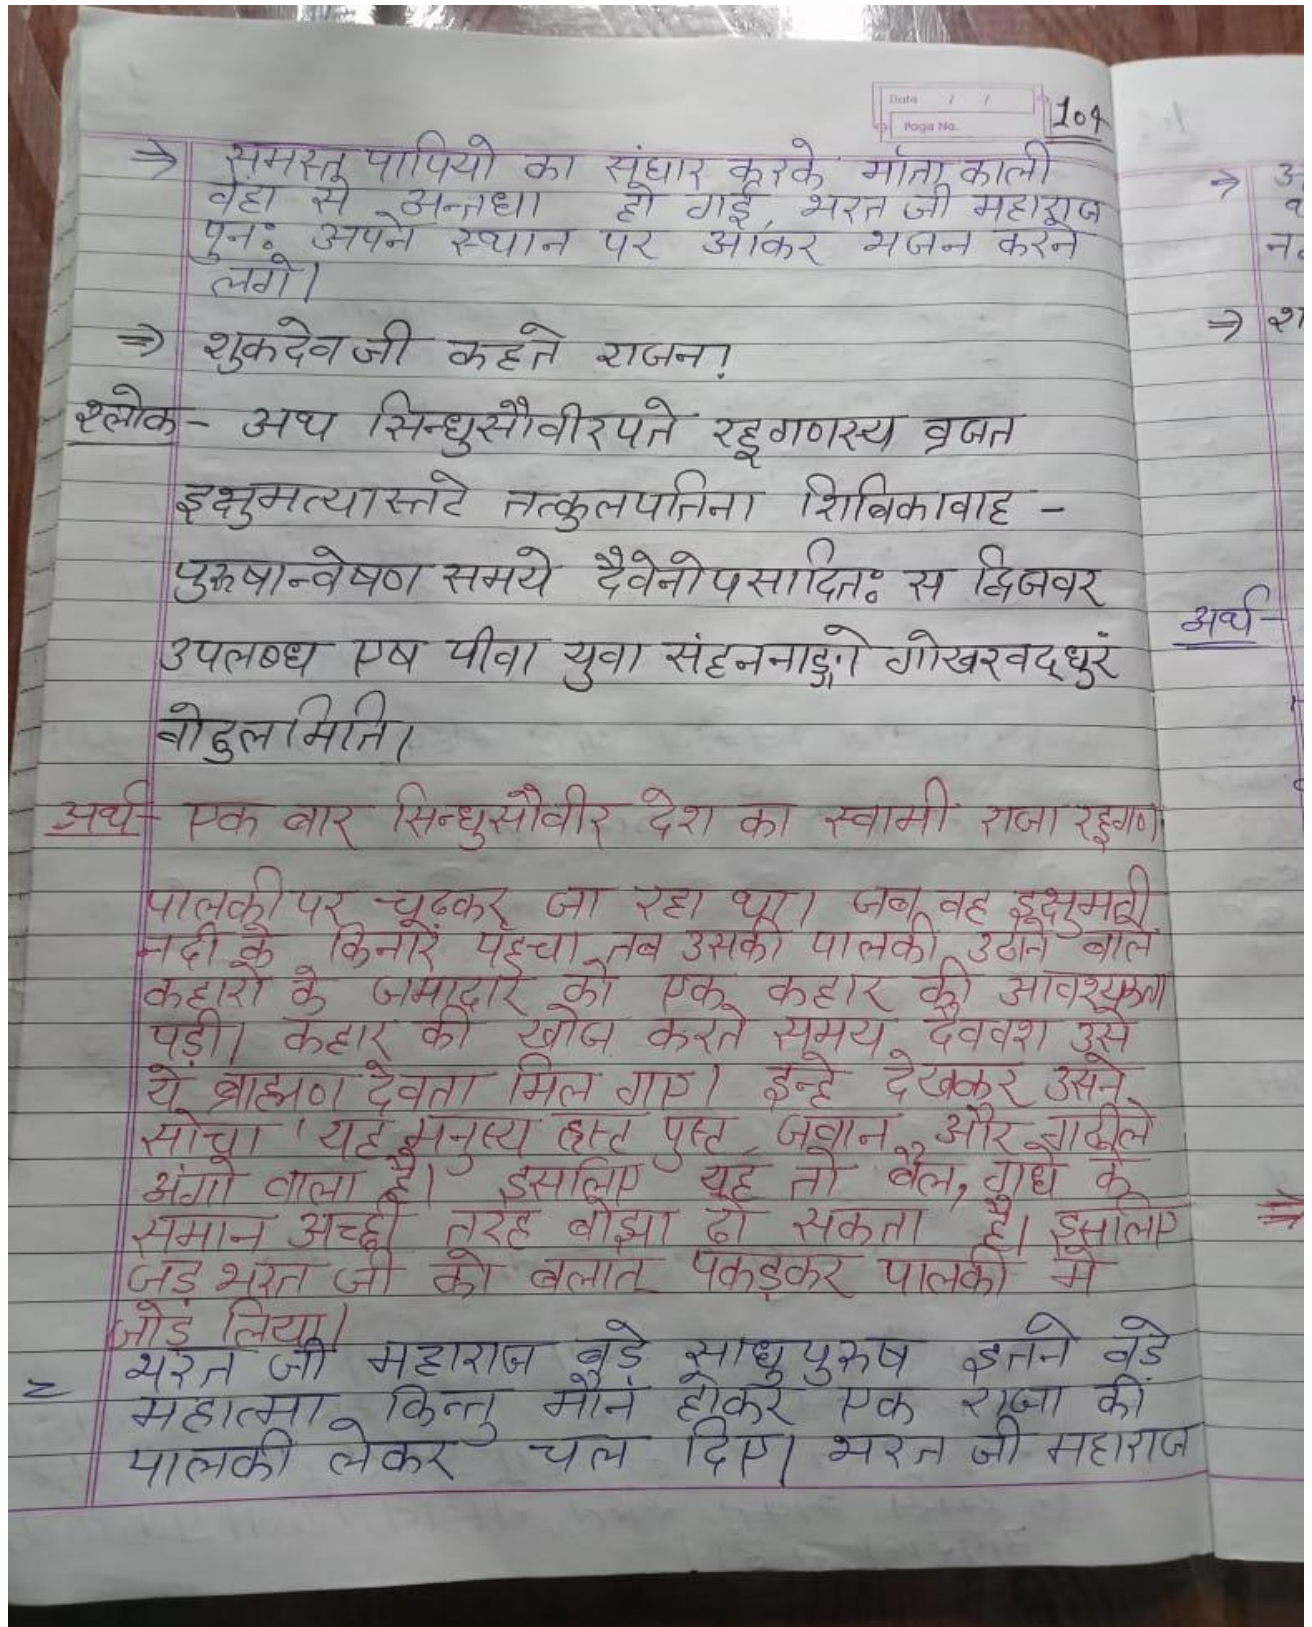 Date / /
Page No.
104
⇒ समस्त पापियो का संघार करके माँता काली
वहा से अन्तधा हो गई, भरत जी महाराज
पुनः अपने स्थान पर आकर भजन करने
लगे।
⇒ शुकदेव जी कहते राजन!
श्लोक - अथ सिन्धुसौवीरपते रहूगणस्य व्रजत
इक्षुमत्यास्तटे तत्कुलपतिना शिबिकावाह -
पुरुषान्वेषण समये दैवेनोपसादितः स द्विजवर
उपलब्ध एष पीवा युवा संहननाङ्गो गोखरवद्धुरं
वोढुलमिति।
अर्थ - एक बार सिन्धुसौवीर देश का स्वामी राजा रहूगण
पालकी पर चढ़कर जा रहा था। जब वह इक्षुमती
नदी के किनारे पहुचा तब उसकी पालकी उठाने बाले
कहारो के जमादार को एक कहार की आवश्यकता
पड़ी। कहार की खोज करते समय दैववश उसे
ये ब्राह्मण देवता मिल गए। इन्हे देखकर उसने
सोचा 'यह मनुस्य हस्ट पुस्ट, जवान और गठीले
अंगो वाला है। इसलिए यह तो बैल, गधे के
समान अच्छी तरह बोझा ढो सकता है। इसलिए
जड़ भरत जी को बलात् पकड़कर पालकी मे
जोड़ लिया।
= भरत जी महाराज बड़े साधु पुरुष इतने बडे
महात्मा किन्तु मौन होकर एक राजा की
पालकी लेकर चल दिए। भरत जी महाराज
⇒
⇒
अर्थ -
⇒